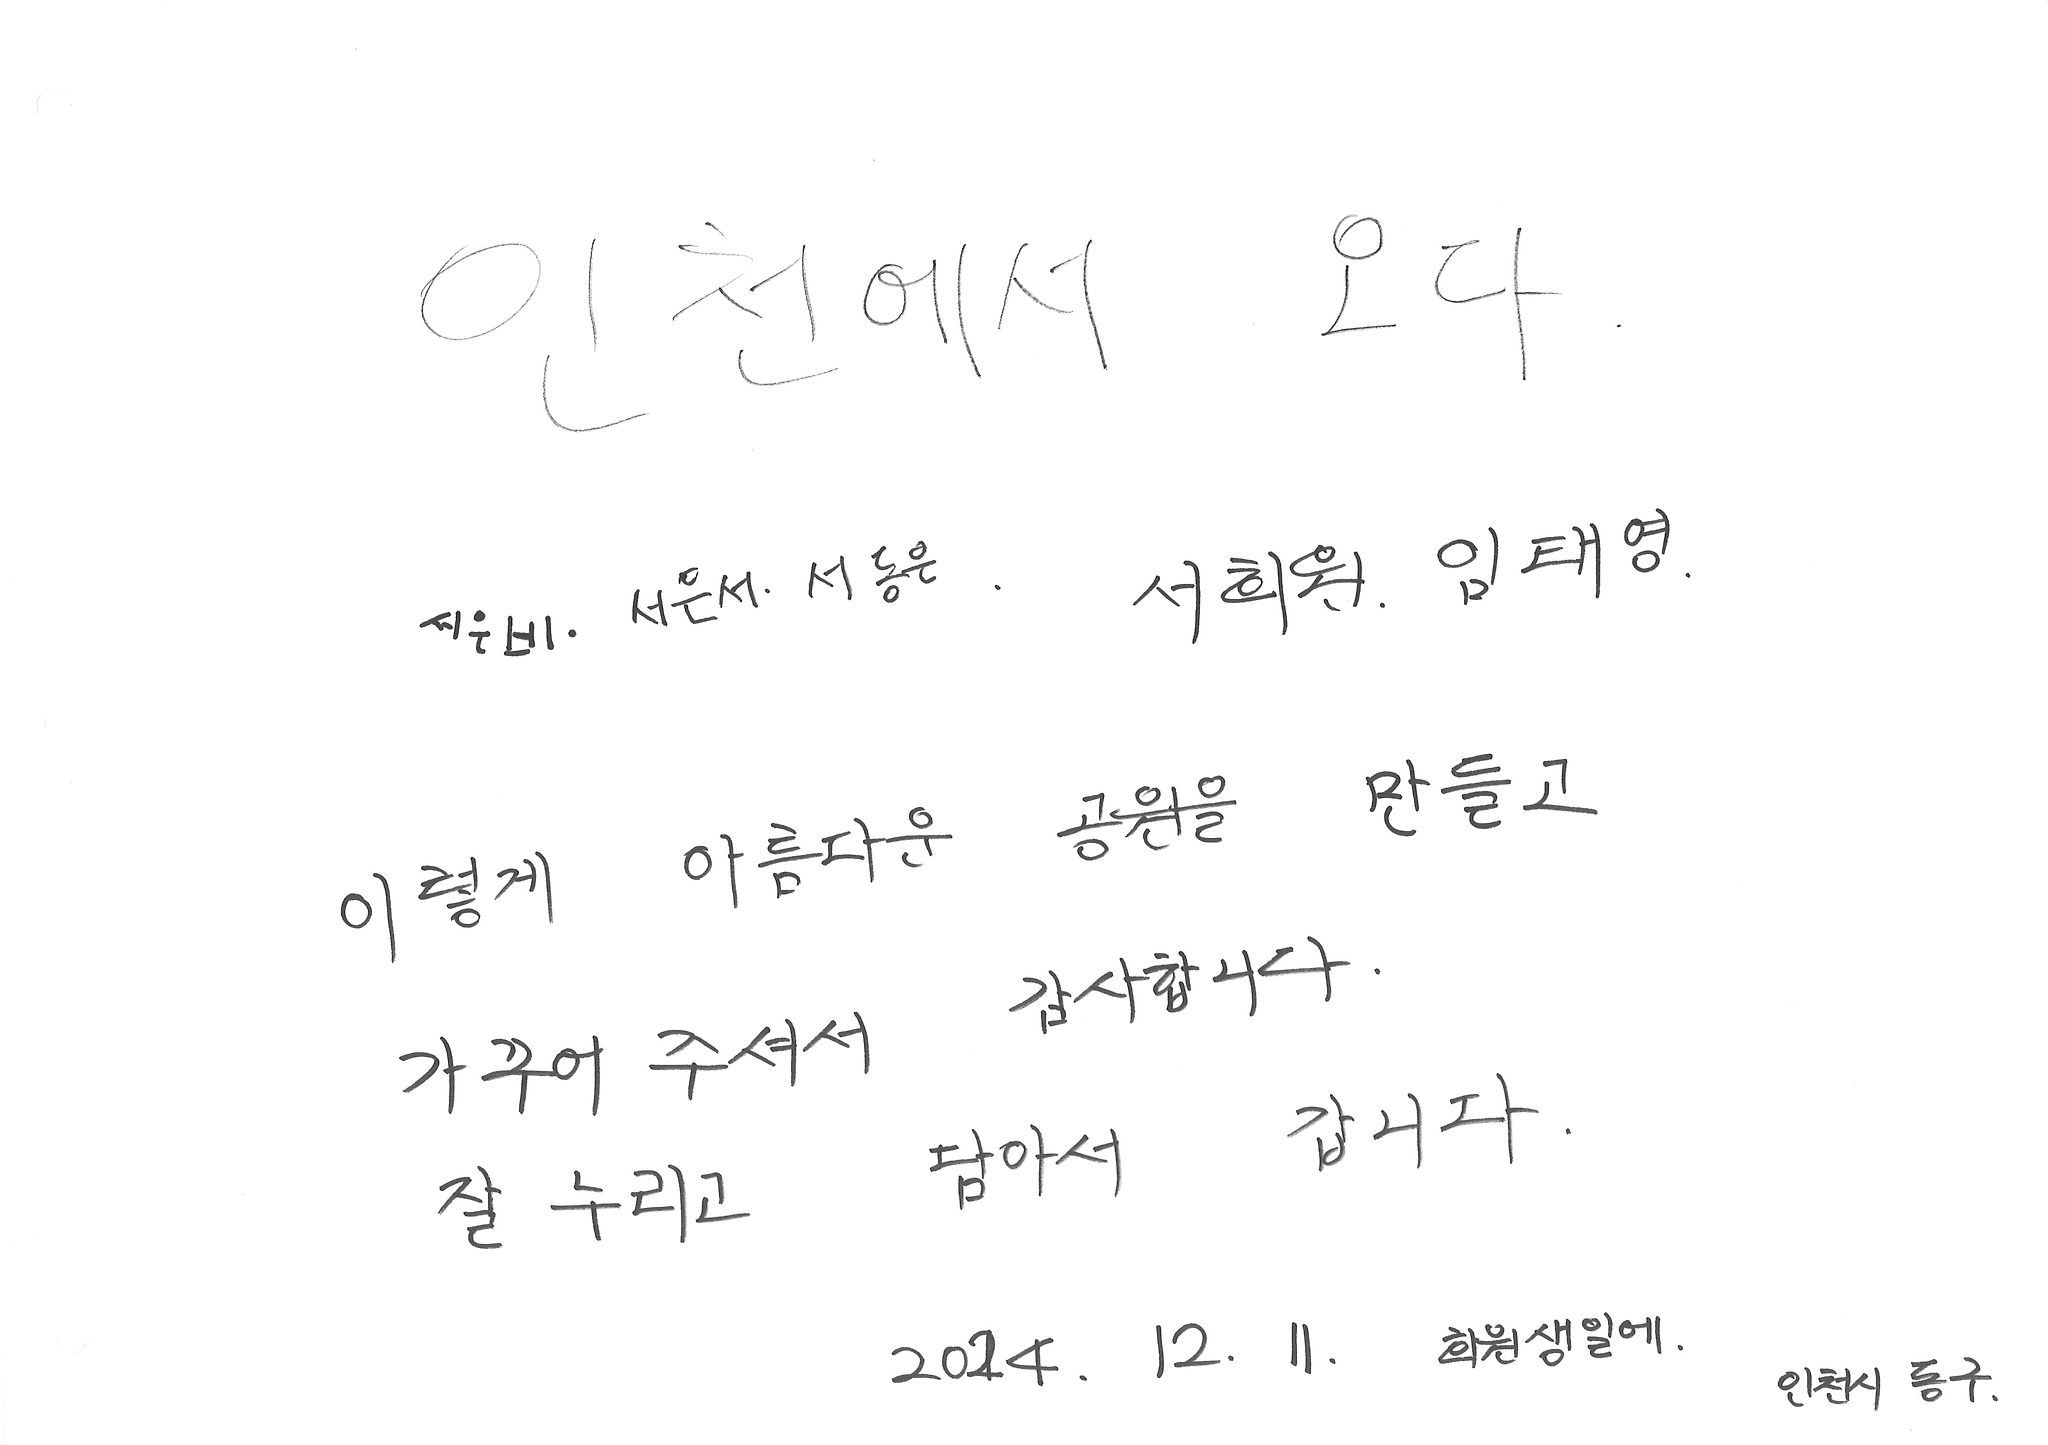 인천에서 오다.
서은비. 서은서. 서동은. 서희원. 임태영.
이렇게 아름다운 공원을 만들고
가꾸어 주셔서 감사합니다.
잘 누리고 담아서 갑니다.
2024. 12. 11. 희원생일에.
인천시 동구.